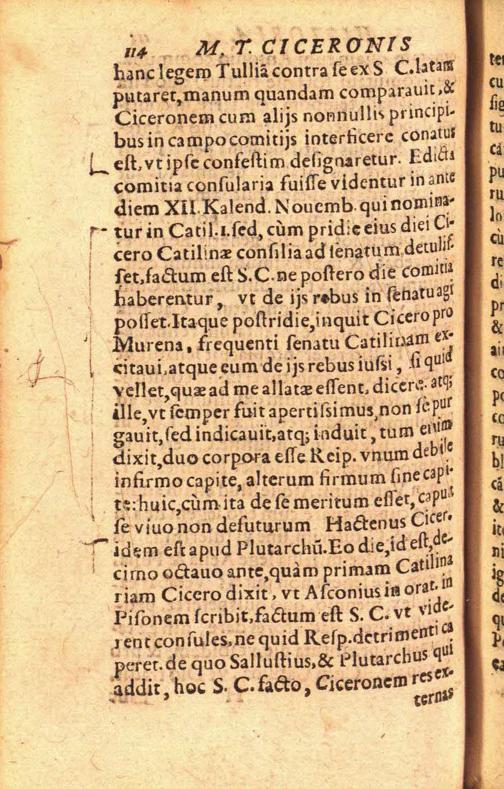 114 M. T. CICERONIS
hanc legem Tulliã contra ſe ex S C. latam
putaret, manum quandam comparauit, &
Ciceronem cum alijs nonnullis principi-
bus in campo comitijs interficere conatus
eſt, vt ipſe confeſtim deſignaretur. Edicta
comitia conſularia fuiſſe videntur in ante
diem XII. Kalend. Nouemb. qui nomina-
tur in Catil. 1. ſed, cùm pridie eius diei Ci-
cero Catilinæ conſilia ad ſenatum detuliſ-
ſet, factum eſt S. C. ne poſtero die comitia
haberentur, vt de ijs rebus in ſenatu agi
poſſet. Itaque poſtridie, inquit Cicero pro
Murena, frequenti ſenatu Catilinam ex-
citaui, atque eum de ijs rebus iuſſi, ſi quid
vellet, quæ ad me allatæ eſſent, dicere. atq;
ille, vt ſemper fuit apertiſsimus, non ſe pur
gauit, ſed indicauit, atq; induit, tum enim
dixit, duo corpora eſſe Reip. vnum debile
infirmo capite, alterum firmum ſine capi-
te: huic, cùm ita de ſe meritum eſſet, caput
ſe viuo non defuturum Hactenus Cicer.
idem eſt apud Plutarchũ. Eo die, id eſt, de-
cimo octauo ante, quàm primam Catilina
riam Cicero dixit, vt Aſconius in orat. in
Piſonem ſcribit, factum eſt S. C. vt vide-
rent conſules, ne quid Reſp. detrimenti ca
peret. de quo Salluſtius, & Plutarchus qui
addit, hoc S. C. facto, Ciceronem res ex-
ternas